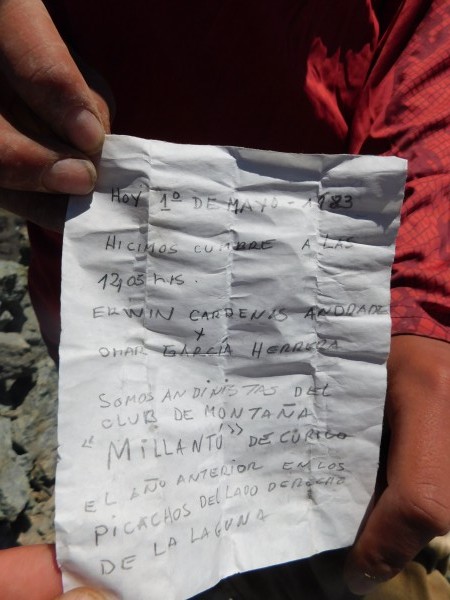 HOY 1º DE MAYO - 1983
HICIMOS CUMBRE A LAS
12,05 hrs.
ERWIN CARDENAS ANDRADE
Y
OMAR GARCÍA HERRERA
SOMOS ANDINISTAS DEL
CLUB DE MONTAÑA
"MILLANTÚ" DE CURICO
EL AÑO ANTERIOR EN LOS
PICACHOS DEL LADO DERECHO
DE LA LAGUNA